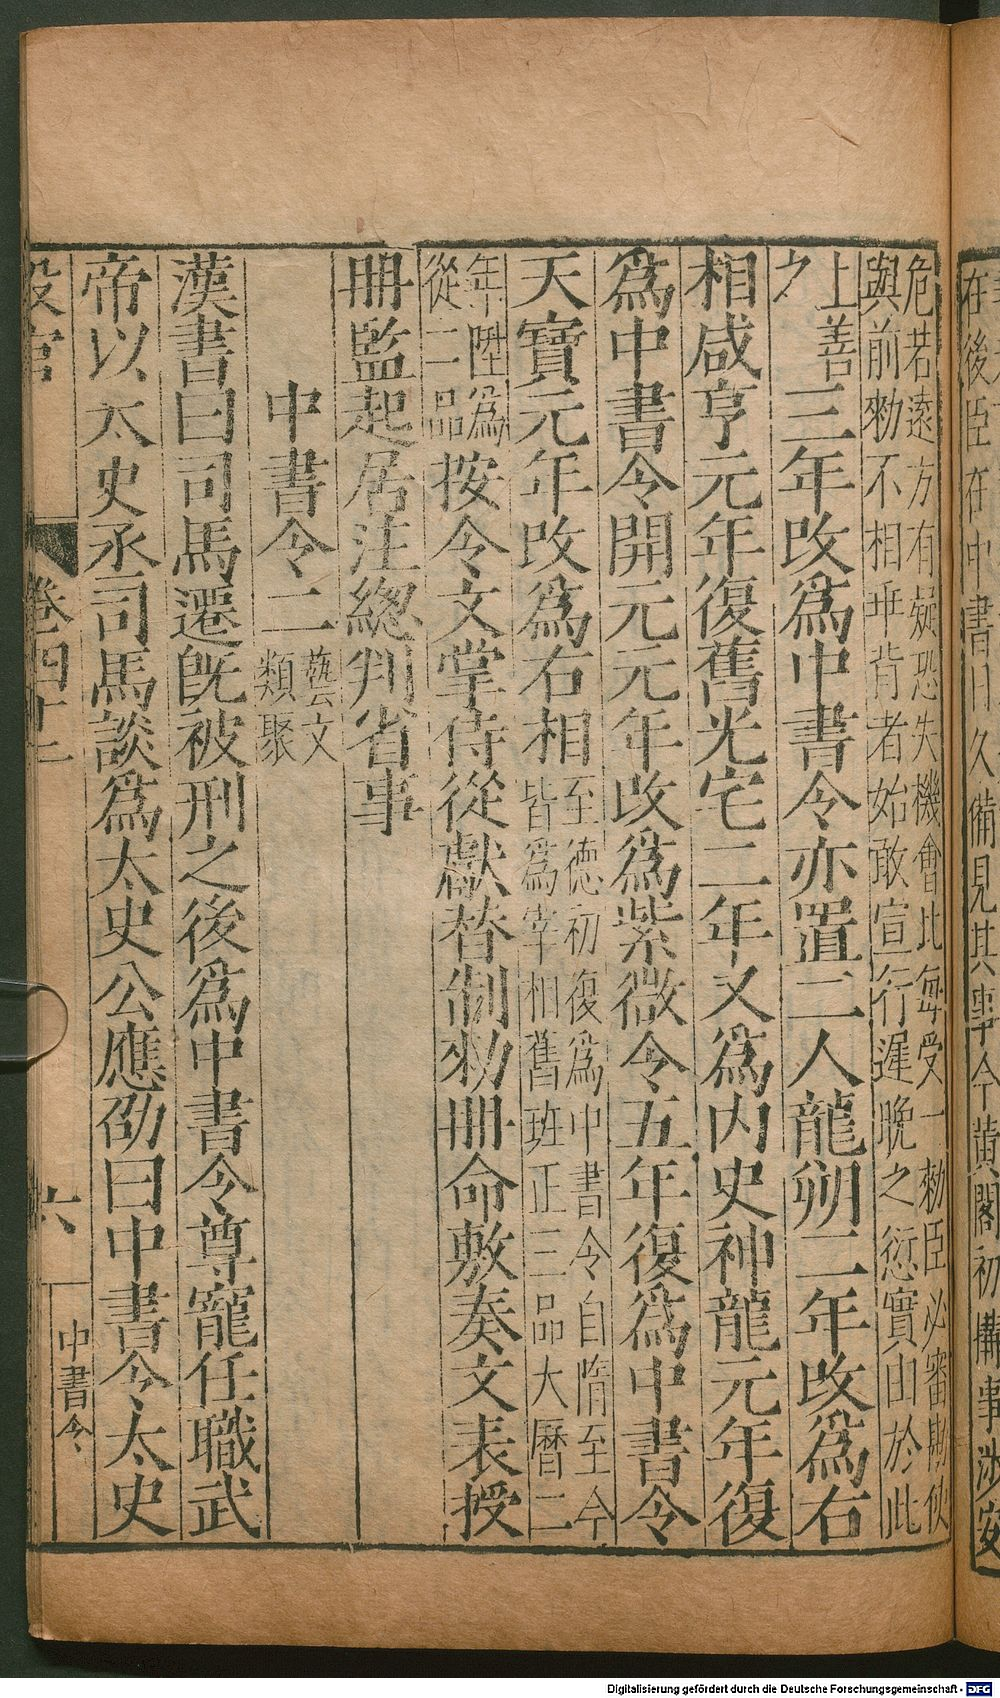 在後臣在中書日久備見其事今黃閣初構事涉安
危若遠方有疑恐失機會比每受一勅臣必審勘使
與前勅不相乖背者始敢宣行遲晚之愆實由於此
上善
之
三年改爲中書令亦置二人龍朔二年改爲右
相咸亨元年復舊光宅二年又爲內史神龍元年復
爲中書令開元元年改爲紫微令五年復爲中書令
天寶元年改爲右相
至德初復爲中書令自隋至今
皆爲宰相舊班正三品大曆二
年陞爲
從二品
按令文掌侍從獻替制勅冊命敷奏文表授
冊監起居注總判省事
中書令二
藝文
類聚
漢書曰司馬遷旣被刑之後爲中書令尊寵任職武
帝以太史丞司馬談爲太史公應劭曰中書令太史
設官
卷四十二
六
中書令
Digitalisierung gefördert durch die Deutsche Forschungsgemeinschaft - DFG